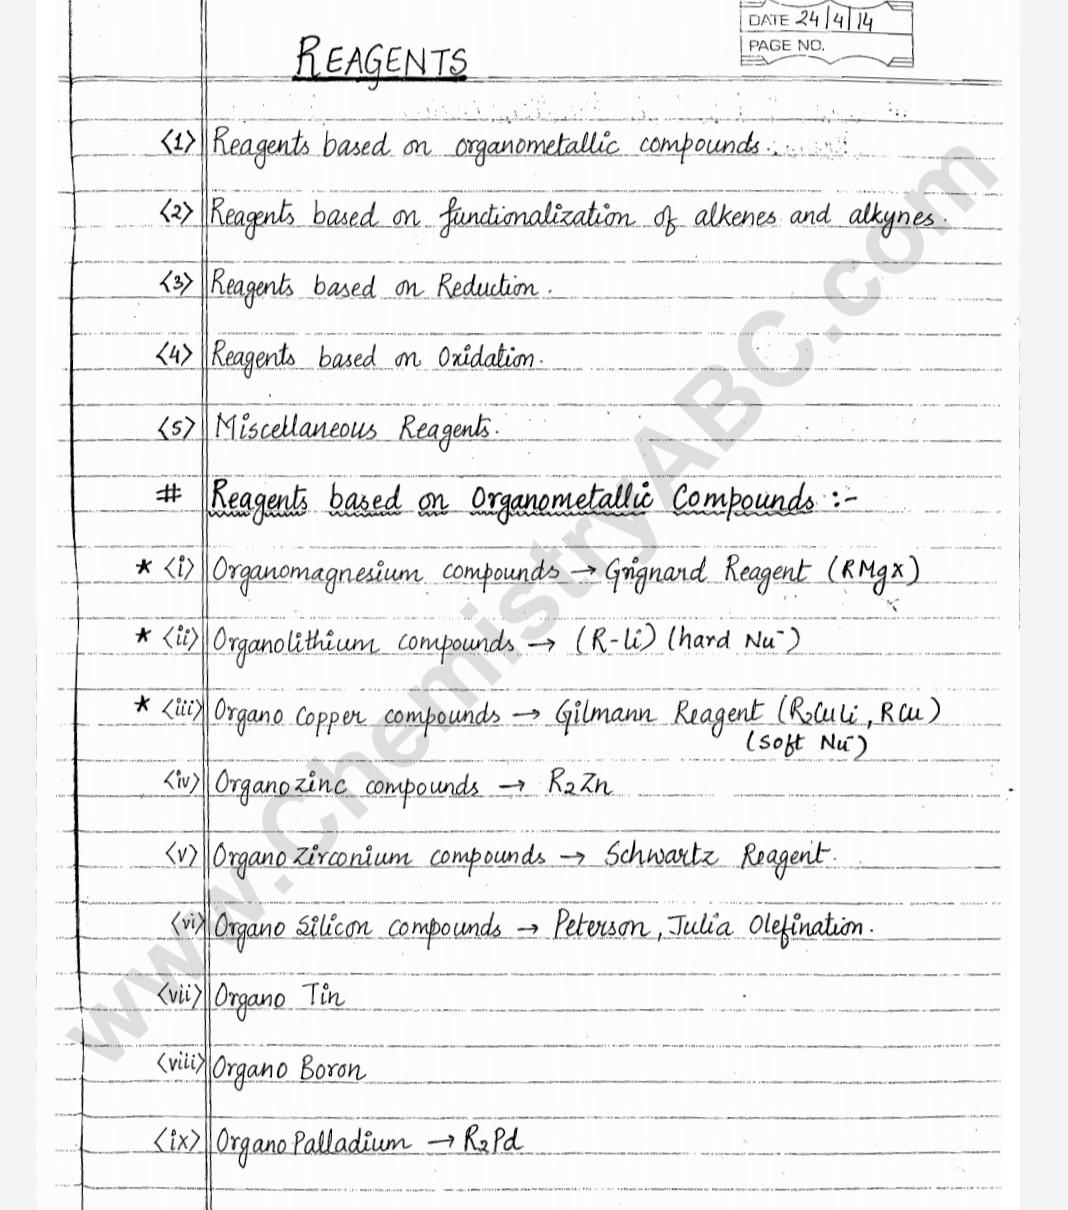 DATE 24/4/14
PAGE NO.
REAGENTS
<1> Reagents based on organometallic compounds.
<2> Reagents based on functionalization of alkenes and alkynes.
<3> Reagents based on Reduction.
<4> Reagents based on Oxidation.
<5> Miscellaneous Reagents.
# Reagents based on Organometallic Compounds :-
* <i> Organomagnesium compounds → Grignard Reagent (RMgX)
* <ii> Organolithium compounds → (R-Li) (hard Nu⁻)
* <iii> Organo Copper compounds → Gilmann Reagent (R₂CuLi, RCu)
(soft Nu⁻)
<iv> Organozinc compounds → R₂Zn
<v> Organo Zirconium compounds → Schwartz Reagent.
<vi> Organo Silicon compounds → Peterson, Julia Olefination.
<vii> Organo Tin
<viii> Organo Boron
<ix> Organo Palladium → R₂Pd
www.ChemistryABC.com